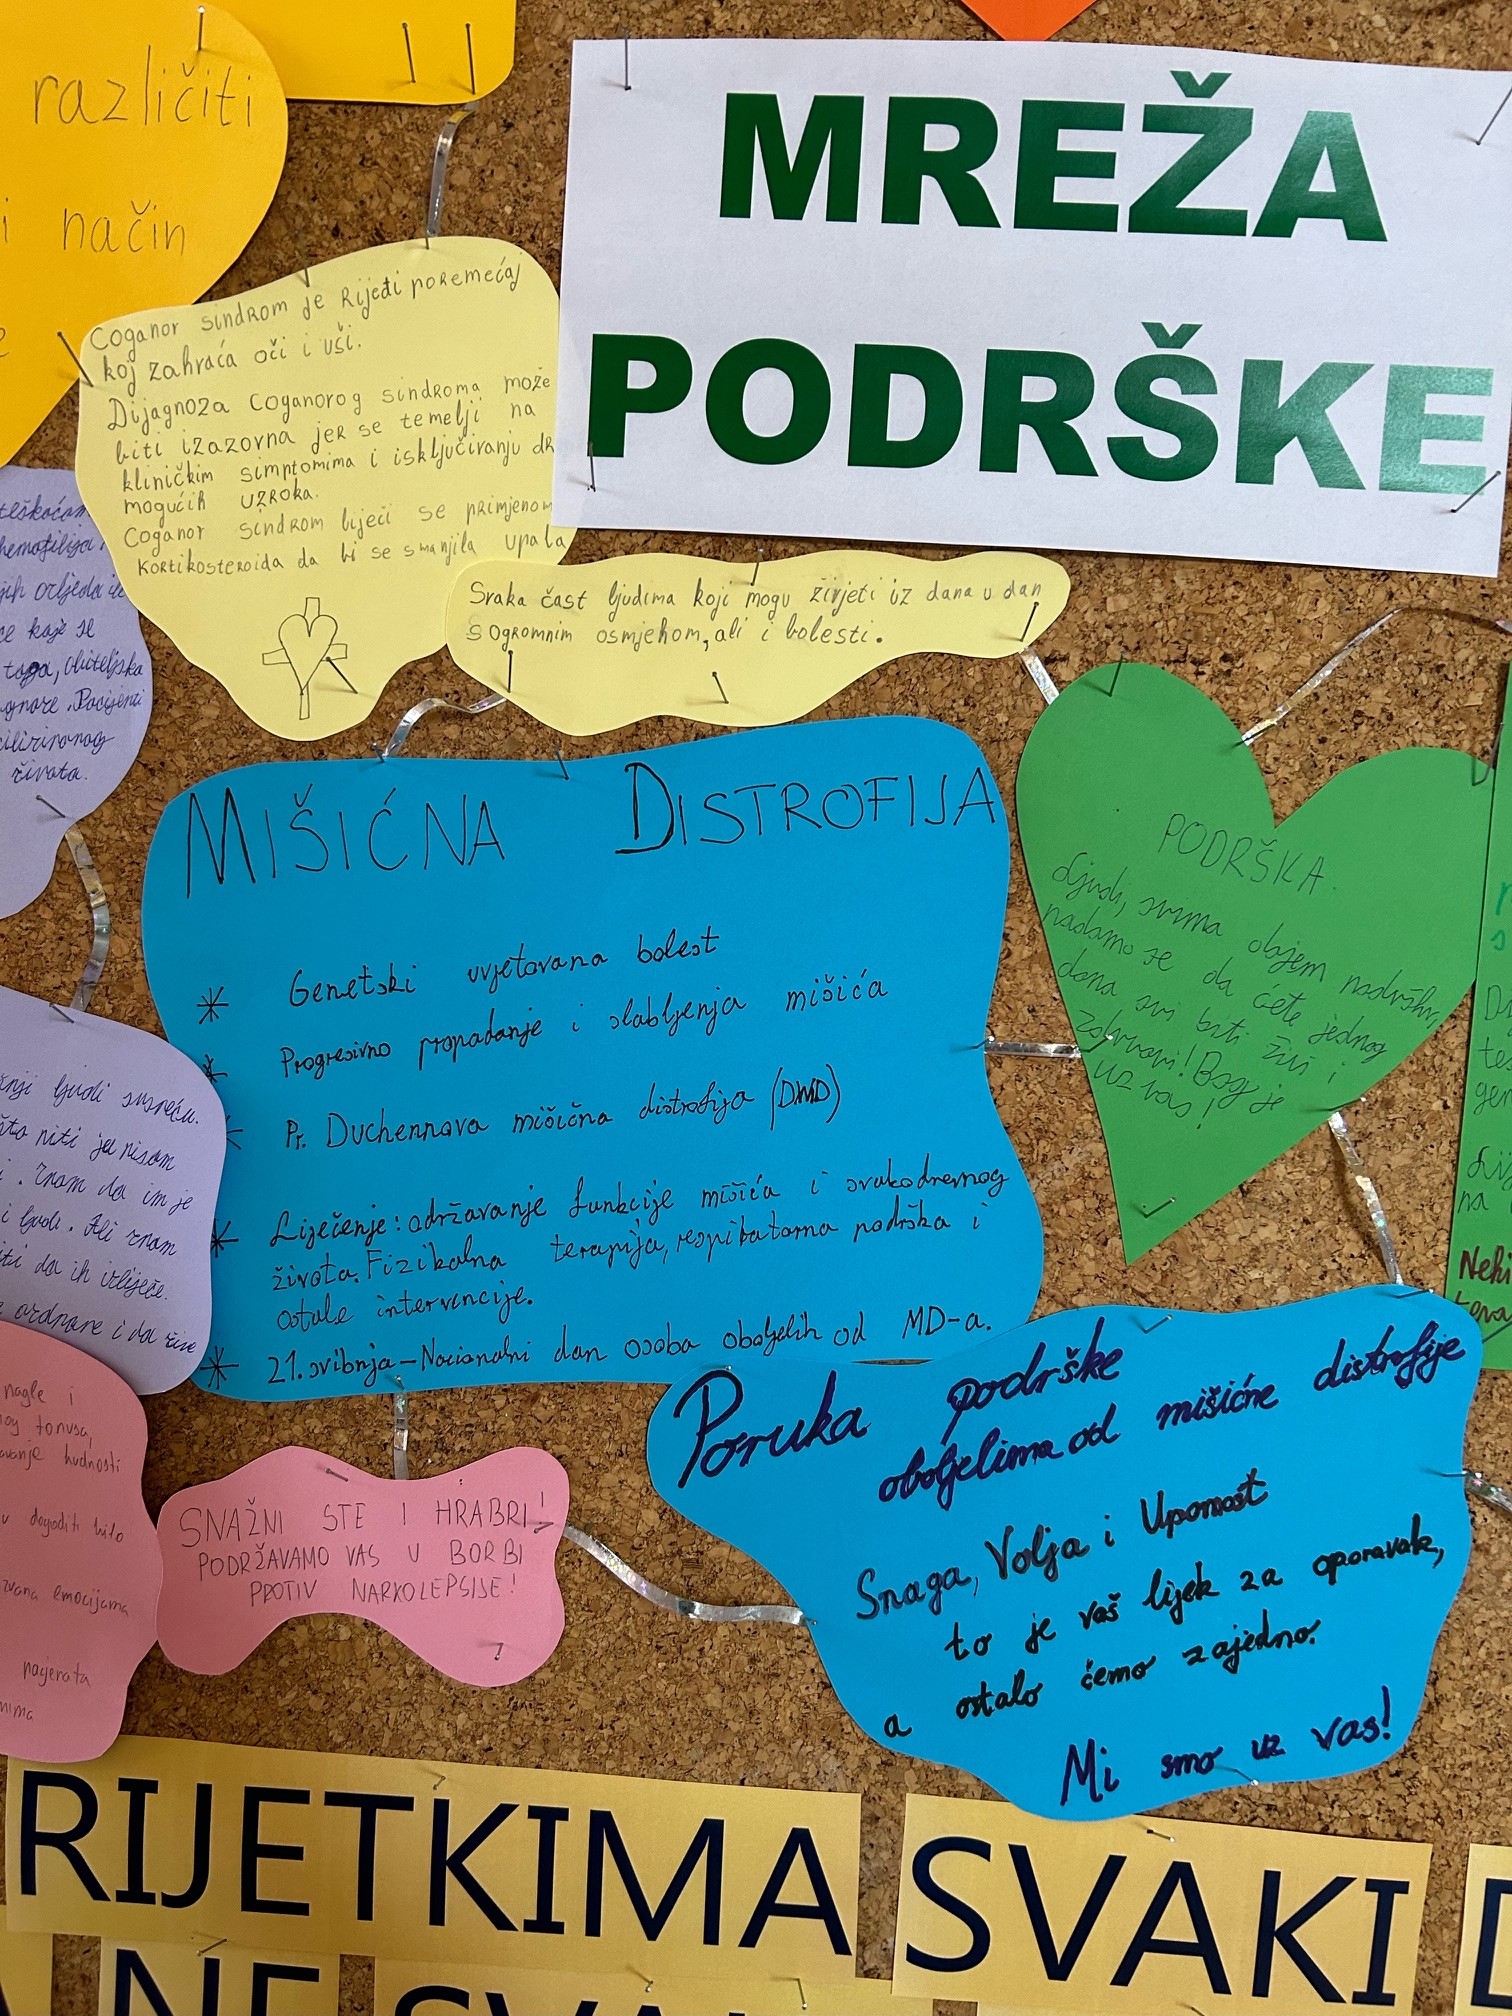 različiti
i način
MREŽA
PODRŠKE
Coganov sindrom je rijetki poremećaj
koj zahvaća oči i uši.
Dijagnoza Coganovog sindroma može
biti izazovna jer se temelji na
kliničkim simptomima i isključivanju dr
mogućih uzroka.
Coganov sindrom liječi se primjenom
kortikosteroida da bi se smanjila upala
Svaka čast ljudima koji mogu živjeti iz dana u dan
s ogromnim osmjehom, ali i bolesti.
teškoćom
hemofilija.
ozljeda
ce koje se
toga, obiteljska
Pacijenti
života.
MIŠIĆNA DISTROFIJA
* Genetski uvjetovana bolest
* Progresivno propadanje i slabljenja mišića
* Pr. Duchennova mišićna distrofija (DMD)
* Liječenje: održavanje funkcije mišića i svakodnevnog
života. Fizikalna terapija, respiratorna podrška i
ostale intervencije.
* 21. svibnja - Nacionalni dan osoba oboljelih od MD-a.
PODRŠKA
Ljudi, svima
nadamo se da ćete jednog
dana svi biti živi i
zdravi! Bog je
uz vas!
ljudi susreću.
što niti ja nisam
i. Znam da im je
i ljudi. Ali znam
iti da ih izliječe.
ozdrave i da žive
nagle i
tonusa,
budnosti
u dogoditi bilo
zvana emocijama
Neki
SNAŽNI STE I HRABRI!
PODRŽAVAMO VAS U BORBI
PROTIV NARKOLEPSIJE!
Poruka podrške
oboljelima od mišićne distrofije
Snaga, Volja i Upornost
to je vaš lijek za oporavak,
a ostalo ćemo zajedno.
Mi smo uz vas!
RIJETKIMA SVAKI D
NE SVA